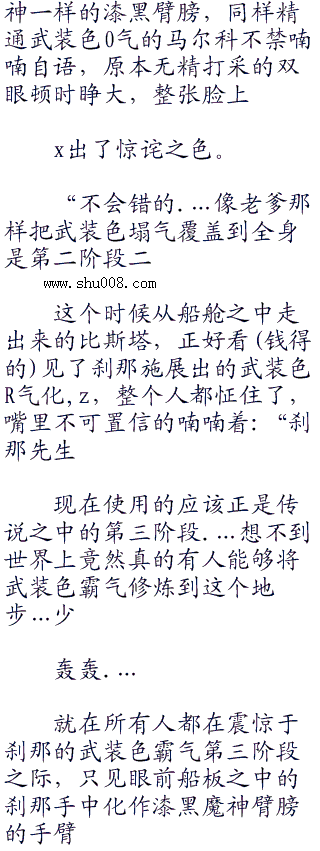 神一样的漆黑臂膀，同样精
通武装色0气的马尔科不禁喃
喃自语，原本无精打采的双
眼顿时睁大，整张脸上
x出了惊诧之色。
“不会错的.…像老爹那
样把武装色塌气覆盖到全身
是第二阶段二
www.shu008.com
这个时候从船舱之中走
出来的比斯塔，正好看(钱得
的)见了刹那施展出的武装色
R气化,z，整个人都怔住了，
嘴里不可置信的喃喃着:“刹
那先生
现在使用的应该正是传
说之中的第三阶段.…想不到
世界上竟然真的有人能够将
武装色霸气修炼到这个地
步…少
轰轰.…
就在所有人都在震惊于
刹那的武装色霸气第三阶段
之际，只见眼前船板之中的
刹那手中化作漆黑魔神臂膀
的手臂